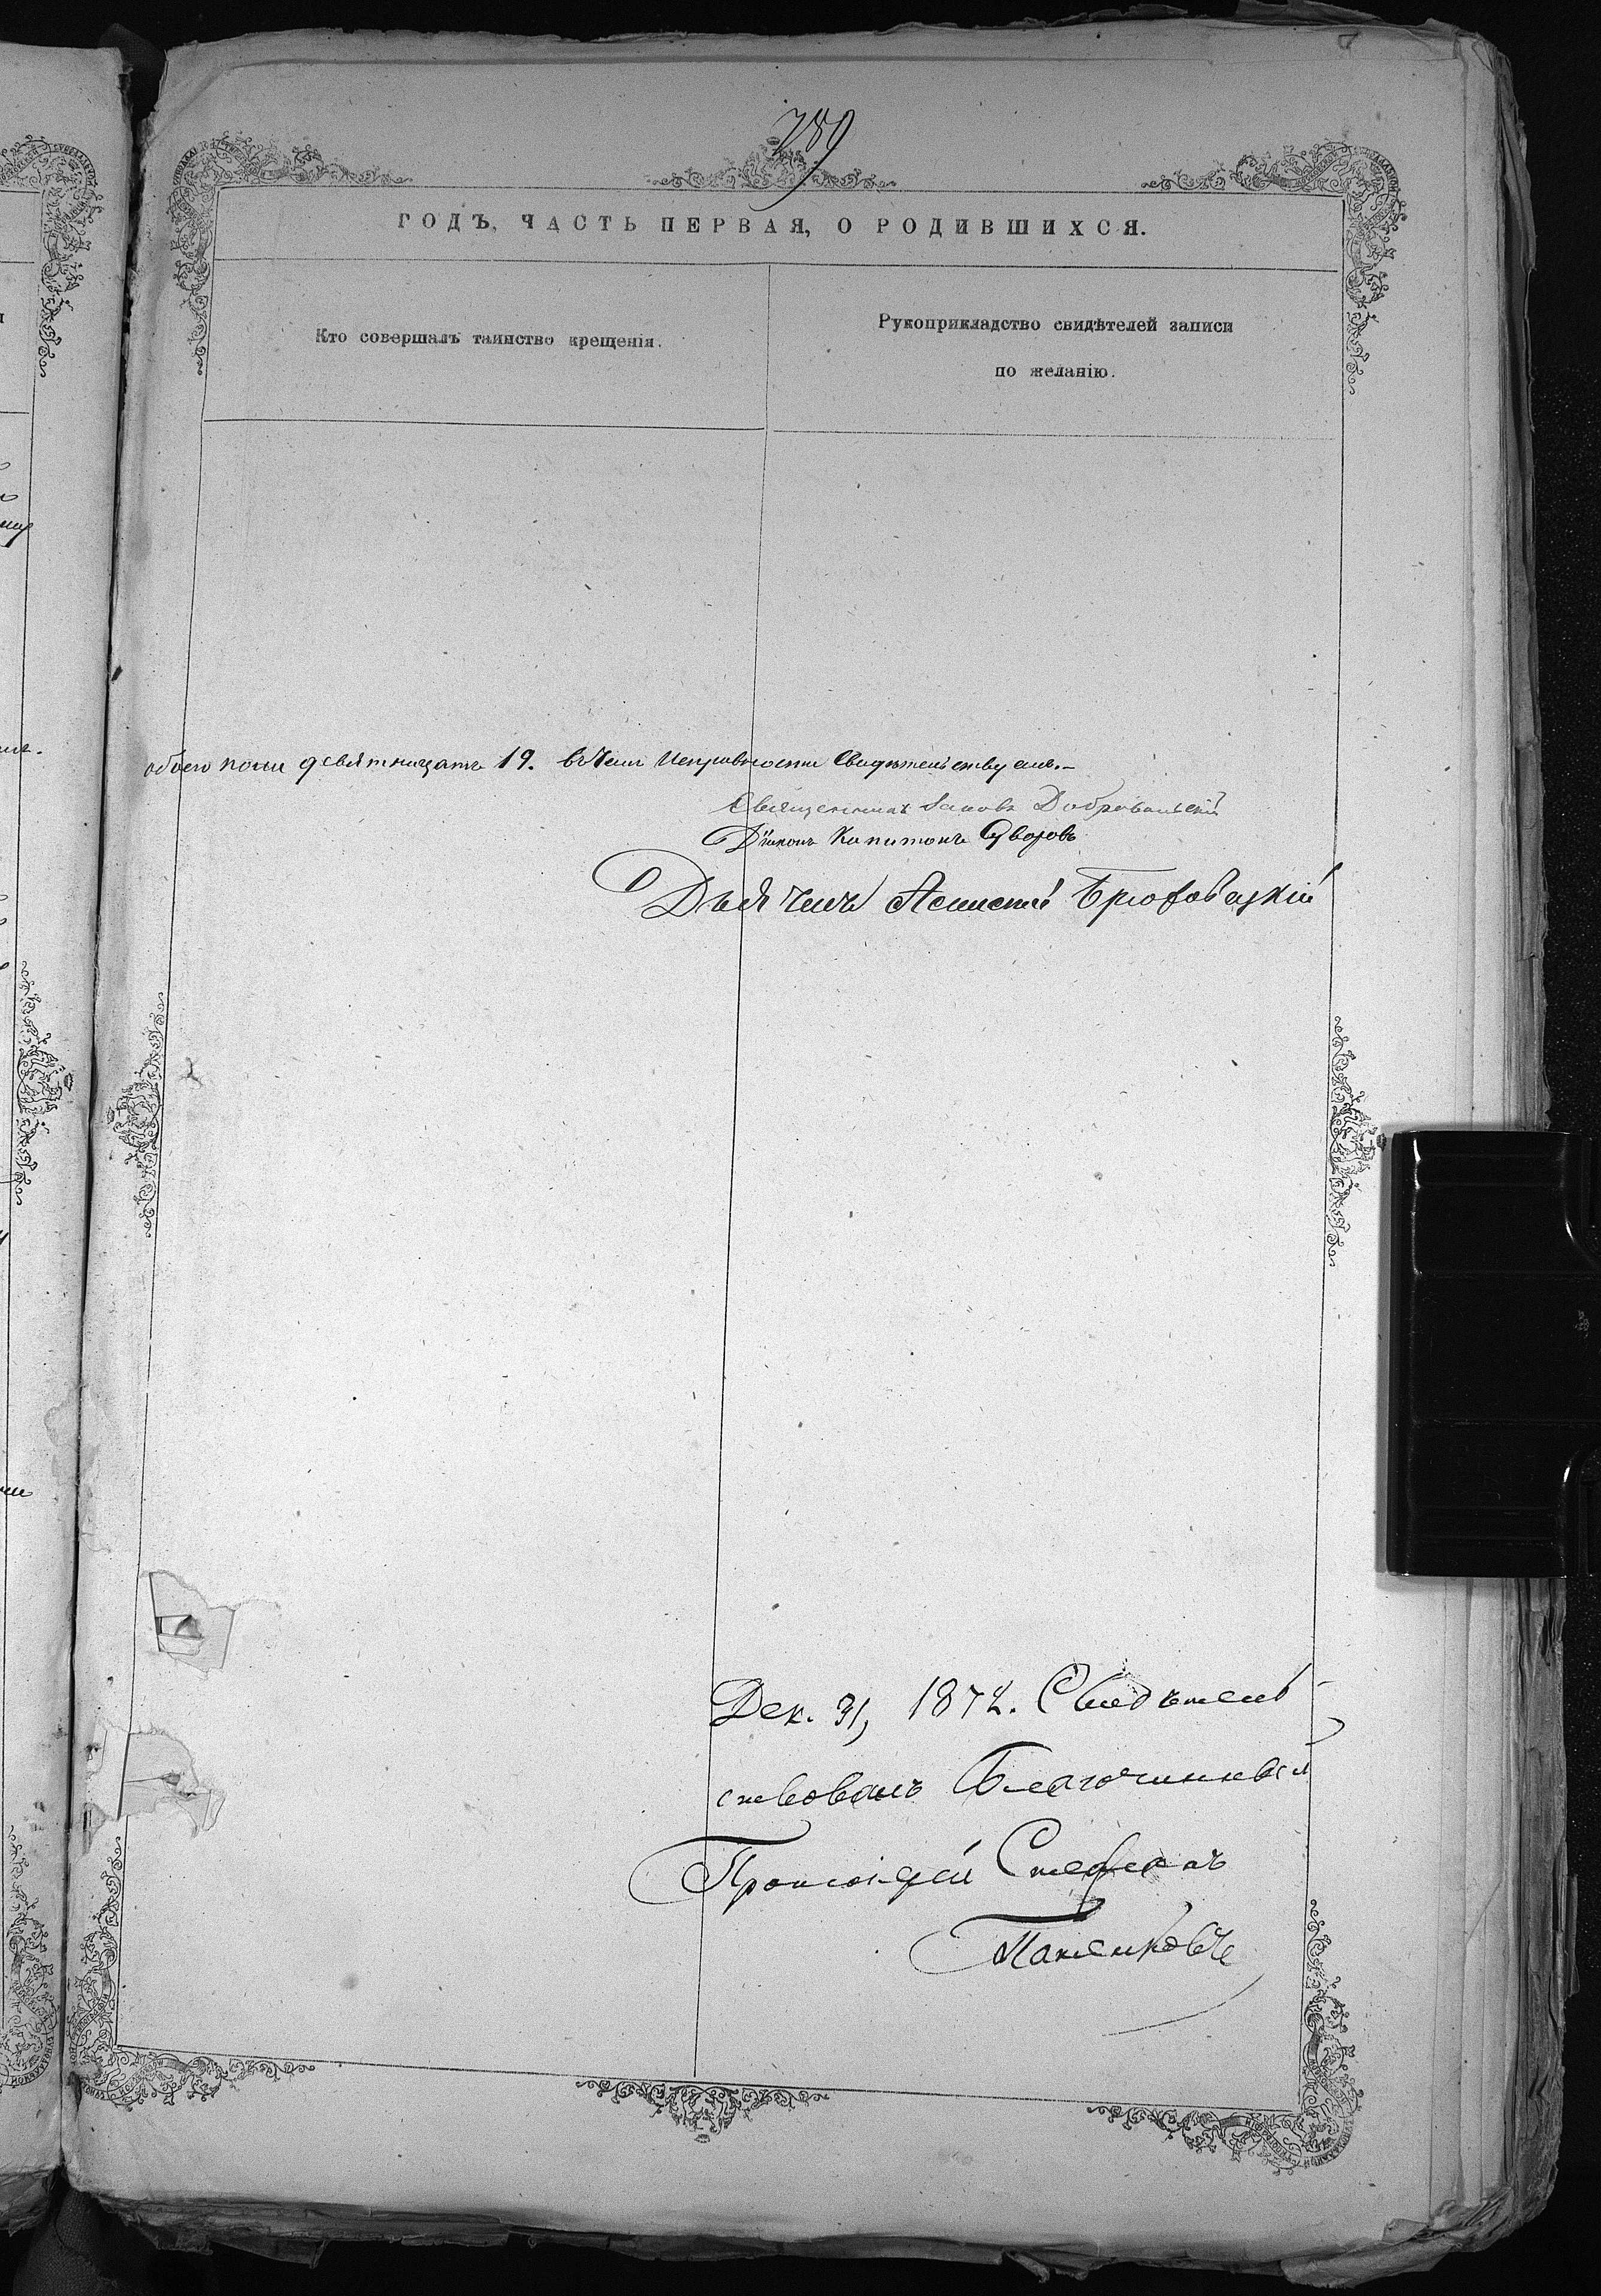 789
ГОДЪ, ЧАСТЬ ПЕРВАЯ, О РОДИВШИХСЯ.
Кто совершалъ таинство крещенія.
Рукоприкладство свидѣтелей записи
по желанію.
обоего пола девятнадцать 19. въ чемъ исправности свидѣтельствуемъ.—
Священникъ Іаковъ Добровольскій
Діаконъ Капитонъ Яворовъ
Дьячекъ Брюховацкій
Дек. 31, 1872. Свидѣтель-
ствовалъ Благочинный
Протоіерей Стефанъ